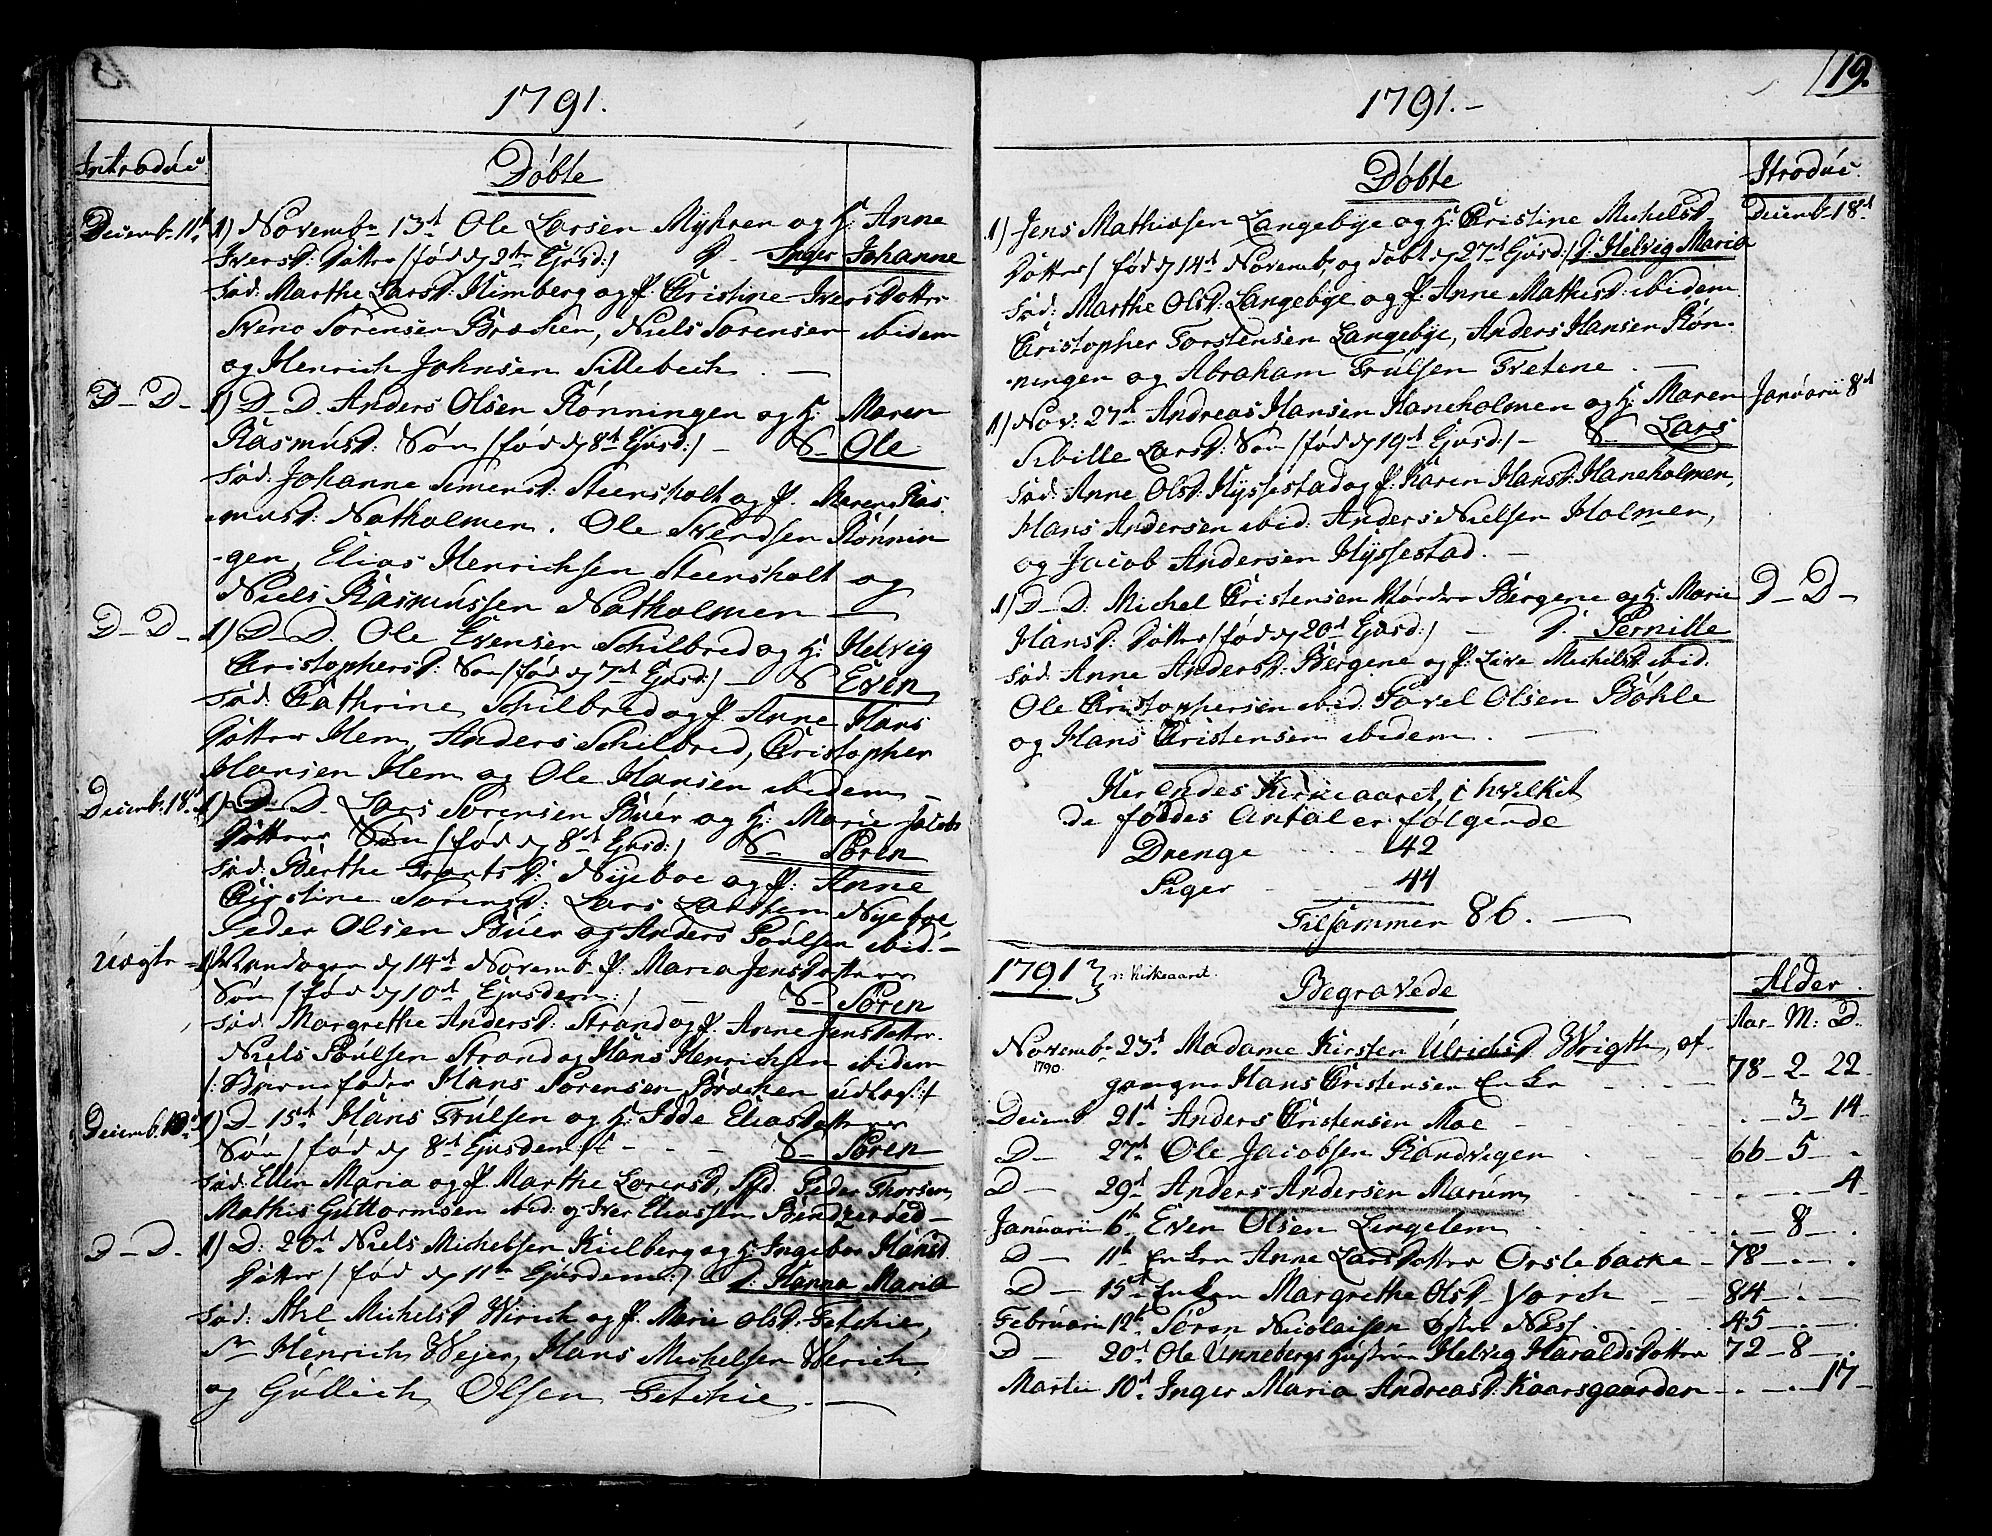 1791.
Introduc
Døbte
Decemb. 11t 1) Novemb. 13d Ole Larsen Myhren og H. Anne
Iversd: Datter /:fød d. 2den Ejusd:/ D. Inger Johanne
Sad: Marthe Larsd: Himberg og J. Christine Ivers Dotter
Sveno Sørensen Bræchen, Niels Sørensen ibidem
og Henrich Johnsen Sillebech . —
D - D - 1) D - D. Anders Olsen Rønningen og H: Maren
Rasmusd: Søn /:fød d. 8d Ejusd:/ - S. Ole
Sad: Johanne Simensd: Steensholt og J. Maren Ras-
musd: Natholmen. Ole Svendsen Rønnin
-gen, Elias Henrichsen Steensholt og
Niels Rasmussen Natholmen —
D - D - 1) D - D. Ole Evensen Schilbred og H: Helvig
Christophersd: Søn /:fød d. 7d Ejusd:/ - S. Even
Sad: Cathrine Schilbred og J. Anne Hans
Datter Hem, Anders Schilbred, Christopher
Hansen Hem og Ole Hansen ibidem -
Decemb. 18d 1) D - D. Lars Sørensen Buer og H: Marie Jacobs
Datters Søn /:fød d. 8d Ejusd:/ S - Søren
Sad: Berthe Trortsd: Nyeboe og J: Anne
Christine Sørensd: Lars Larsen Nyeboe
Peder Olsen Buer og Anders Poulsen ibid -
Uægte - 1) Mandagen d. 14d Novemb. J: Maria Jens Datters
Søn /:fød d. 10d Ejusdem:/ - S - Søren
Sad: Margrethe Andersd: Strand og J. Anne Jensdatter.
Niels Poulsen Strand og Hans Henrichsen ibidem
/: Barnefader Hans Sørensen Bræchen udlagt
Decemb. 1) D - 15d Hans Trulsen og H. Sidse Elias Datters
Søn /:fød d. 8d Ejusdem - - - S - Søren
Sad: Ellen Maria og J. Marthe Lorensd, Peder Thorsen,
Mathis Guttormsen ibid: og Iver Eliassen Bindzerød -
D - D - 1) D: 20d Niels Michelsen Kielberg og H. Ingebor Hansd
Datter /:fød d. 11te Ejusdem:/ D. Hanna Maria
Sad: Michelsd Wirich og J. Marie Olsd. Fetchie,
Sr Henrich Wejer, Hans Michelsen Werich
og Gullich Olsen Fetchie . —
19.
1791. -
Døbte
Itroduc.
1) Jens Mathiasen Langebye og H. Christine Michelsd Decemb. 18d
Datter /:fød d. 14d Novemb. og døbt d. 27d Ejusd:/ D. Helvig Maria
Sad: Marthe Olsd. Langebye og J. Anne Mathisd: ibidem
Christopher Torstensen Langebye, Anders Hansen Røn-
-ningen og Abraham Trulsen Tvetene . —
1) Nov: 27d Andreas Hansen Haneholmen og H. Maren Januarii 8d
Sibille Larsd: Søn /:fød d. 19d Ejusd:/ - S. Lars
Sad: Anne Olsd: Hyssestad og J. Karen Hansd. Haneholmen,
Hans Andersen ibid: Anders Nielsen Holmen,
og Jacob Andersen Hyssestad. -
1) D - D: Michel Christensen Bergene og H. Marie D - D -
Hansd. Datter /:fød d. 20d Ejusd:/ - D. Pernille
Sad: Anne Andersd. Bergene og J. Live Michelsd ibid.
Ole Christophersen ibid. Povel Olsen Bøhle
og Hans Christensen ibidem . —
Her endes Kircheaaret, i hvilket
de føddes Antal er følgende
Drenge - - 42
Piger - - - 44
Tilsammen 86. —
1791 n: Kirkeaaret.
Begravede
Alder.
Aar - M: D.
Novemb. 23d Madame Kirsten Ulrichsd Wrigth, af-
1790.
gangne Hans Christensen Enke 78 - 2 - 22
Decemb 21d Anders Christensen Moe - . - 3 - 14
D - 27d Ole Jacobsen Randvigen 66 - 5 - .
D - 29d Anders Andersen Marum . - . - 4
Januarii 6te Even Olsen Lingelem . - 8 - .
D - 11te Enken Anne Lars Datter Orslebacke - 78 - . - .
D - 15d Enken Margrethe Olsd. Vorch - 84 - . -
Februarii 12te Søren Nicolaisen Østre Næss. 45 - . - .
D - 20d Ole Unnebergs Hustru Helvig Haralds Datter 72 - 8 - .
Martii 10d Inger Maria Andreasd. Kaarsgaarden - . - . 17 -